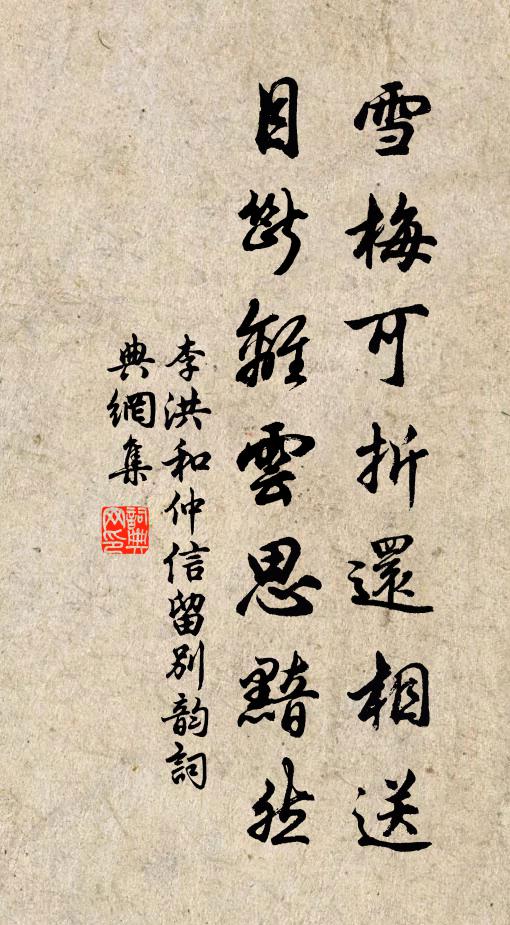 雪梅可折還相送
目斷離雲思黯然
李洪和仲信留別韵詞
典網集
詞典网印